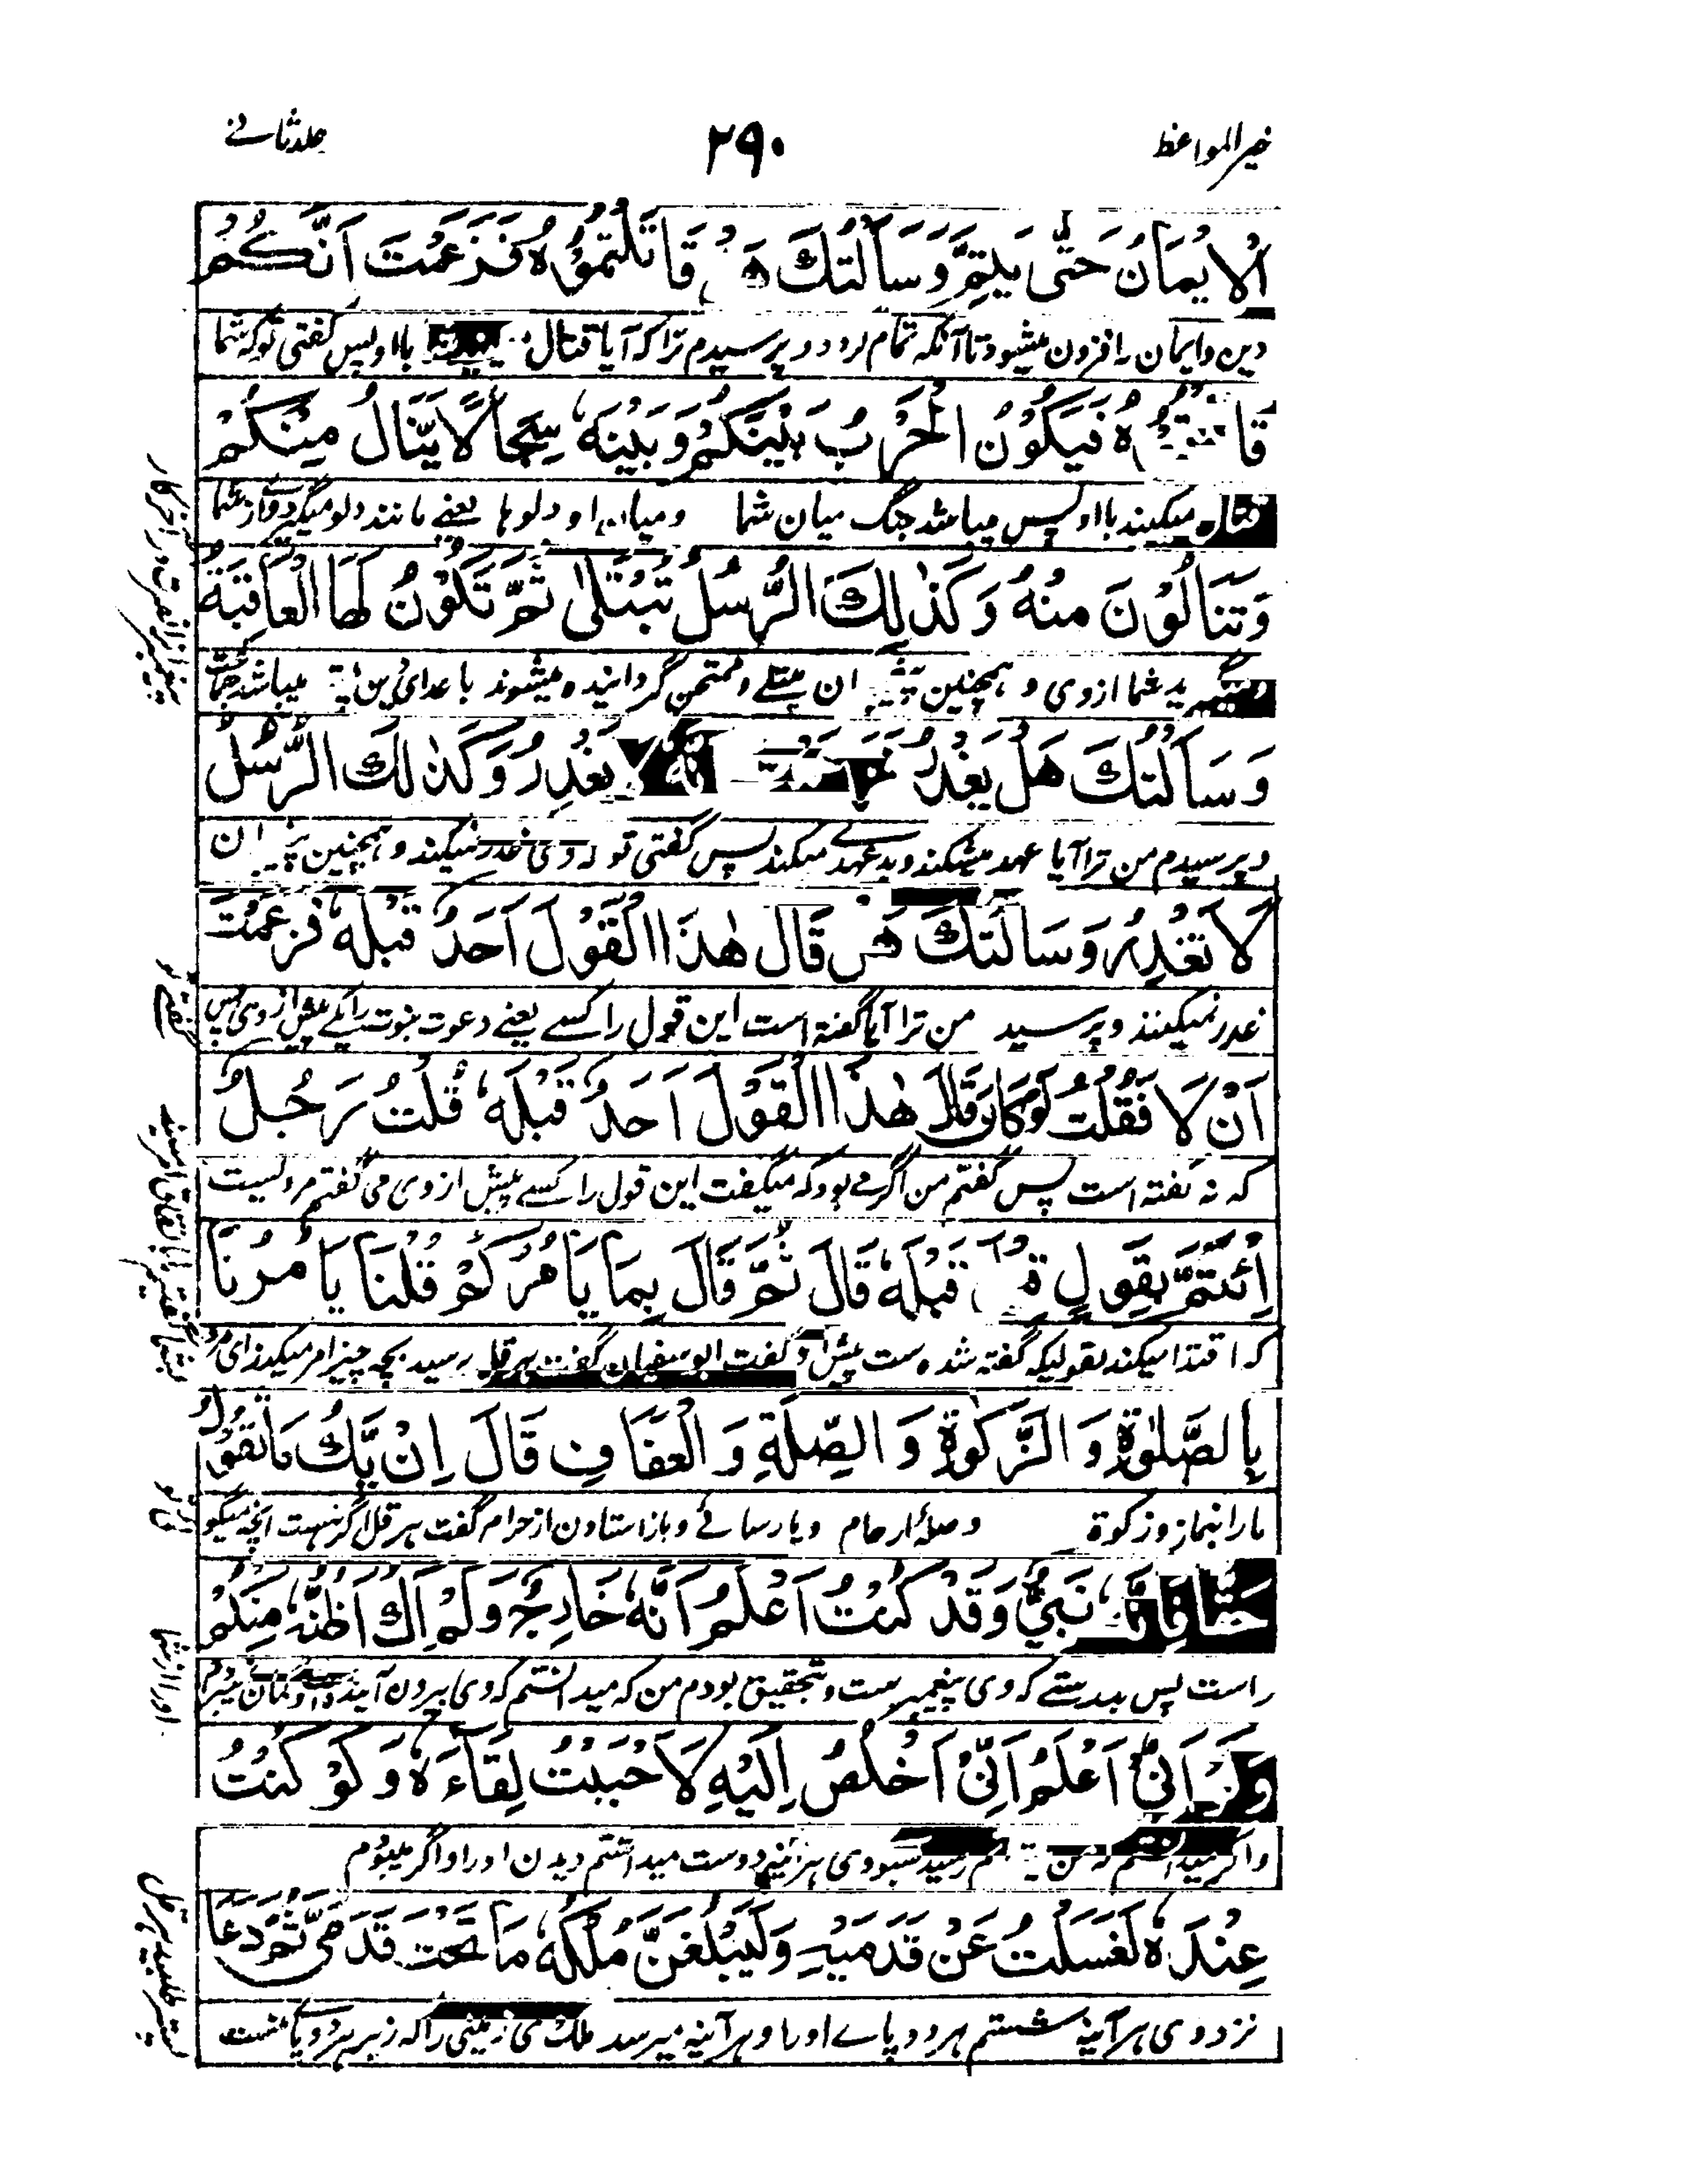 خیر المواعظ
۲۹۰
جلد ثانے
اَلْاِیْمَانُ حَتّٰی یَتِمَّ وَسَاَلْتُكَ قَاتَلْتُمُوْهُ فَزَعَمْتَ اَنَّكُمْ
دین و ایمان افزون میشود تا آنکه تمام و پرسیدم ترا که آیا قتال با او پس گفتی تو که شما
فَیَكُوْنُ الْحَرْبُ بَیْنَكُمْ وَبَیْنَهٗ سِجَالًا یَّنَالُ مِنْكُمْ
میکنید با او پس میباشد جنگ میان شما و میان او دلوها یعنے مانند دلو میگیرد از شما
وَتَنَالُوْنَ مِنْهُ وَكَذٰلِكَ الرُّسُلُ تُبْتَلٰی ثُمَّ تَكُوْنُ لَهَا الْعَاقِبَةُ
شما از وی و همچنین مبتلے و ممتحن گردانیده میشوند با عدائ دین میباشد
وَسَاَلْتُكَ هَلْ یَغْدِرُ یَغْدِرُ وَكَذٰلِكَ الرُّسُلُ
و پرسیدم من ترا آیا عهد میشکند و بد عهدے میکند پس گفتی تو وی غدر نمیکند و همچنین
لَا تَغْدِرُ وَسَاَلْتُكَ قَالَ هٰذَا الْقَوْلَ اَحَدٌ قَبْلَهٗ فَزَعَمْتَ
غدر نمیکنند و پرسید من ترا آیا گفته است این قول را کسے یعنے دعوت نبوت را یکے پیش از وی پس
اَنْ لَا فَقُلْتُ لَوْ كَانَ قَالَ هٰذَا الْقَوْلَ اَحَدٌ قَبْلَهٗ قُلْتُ رَجُلٌ
که نه گفته است پس گفتم من اگر مے بود که میگفت این قول را کسے پیش از وی می گفتم مردیست
اِئْتَمَّ بِقَوْلٍ قَبْلَهٗ قَالَ ثُمَّ قَالَ بِمَا یَاْمُرُكُمْ قُلْنَا یَاْمُرُنَا
که اقتدا میکند بقولیکه گفته شده ست پیش او گفت ابو سفیان گفت هرقل بچه چیز امر میکند
بِالصَّلٰوةِ وَالزَّكٰوةِ وَالصِّلَةِ وَالْعَفَافِ قَالَ اِنْ یَّكُ مَا تَقُوْلُ
مارا بنماز و زکوة و صلۀ ارحام و پارسائے و باز استادن از حرام گفت هرقل اگر هست آنچه میگو
نَبِیٌّ وَقَدْ كُنْتُ اَعْلَمُ اَنَّهٗ خَارِجٌ وَلَمْ اَكُ اَظُنُّهٗ مِنْكُمْ
راست پس بدرستے که وی پیغمبر ست و بتحقیق بودم من که میدانستم که وی بیرون آینده گمان
اَنِّیْ اَعْلَمُ اَنِّیْ اَخْلُصُ اِلَیْهِ لَاَحْبَبْتُ لِقَآءَهٗ وَلَوْ كُنْتُ
و اگر بسوی هرآئینه دوست میداشتم دیدن اورا و اگر میبودم
عِنْدَهٗ لَغَسَلْتُ عَنْ قَدَمَیْهِ وَلَیَبْلُغَنَّ مُلْكُهٗ مَا تَحْتَ قَدَمَیَّ ثُمَّ دَعَا
نزد وی هرآینه شستم هر دو پاے اورا و هرآینه میرسد ملک وی زمینی را که زیر هر دو پاے منست